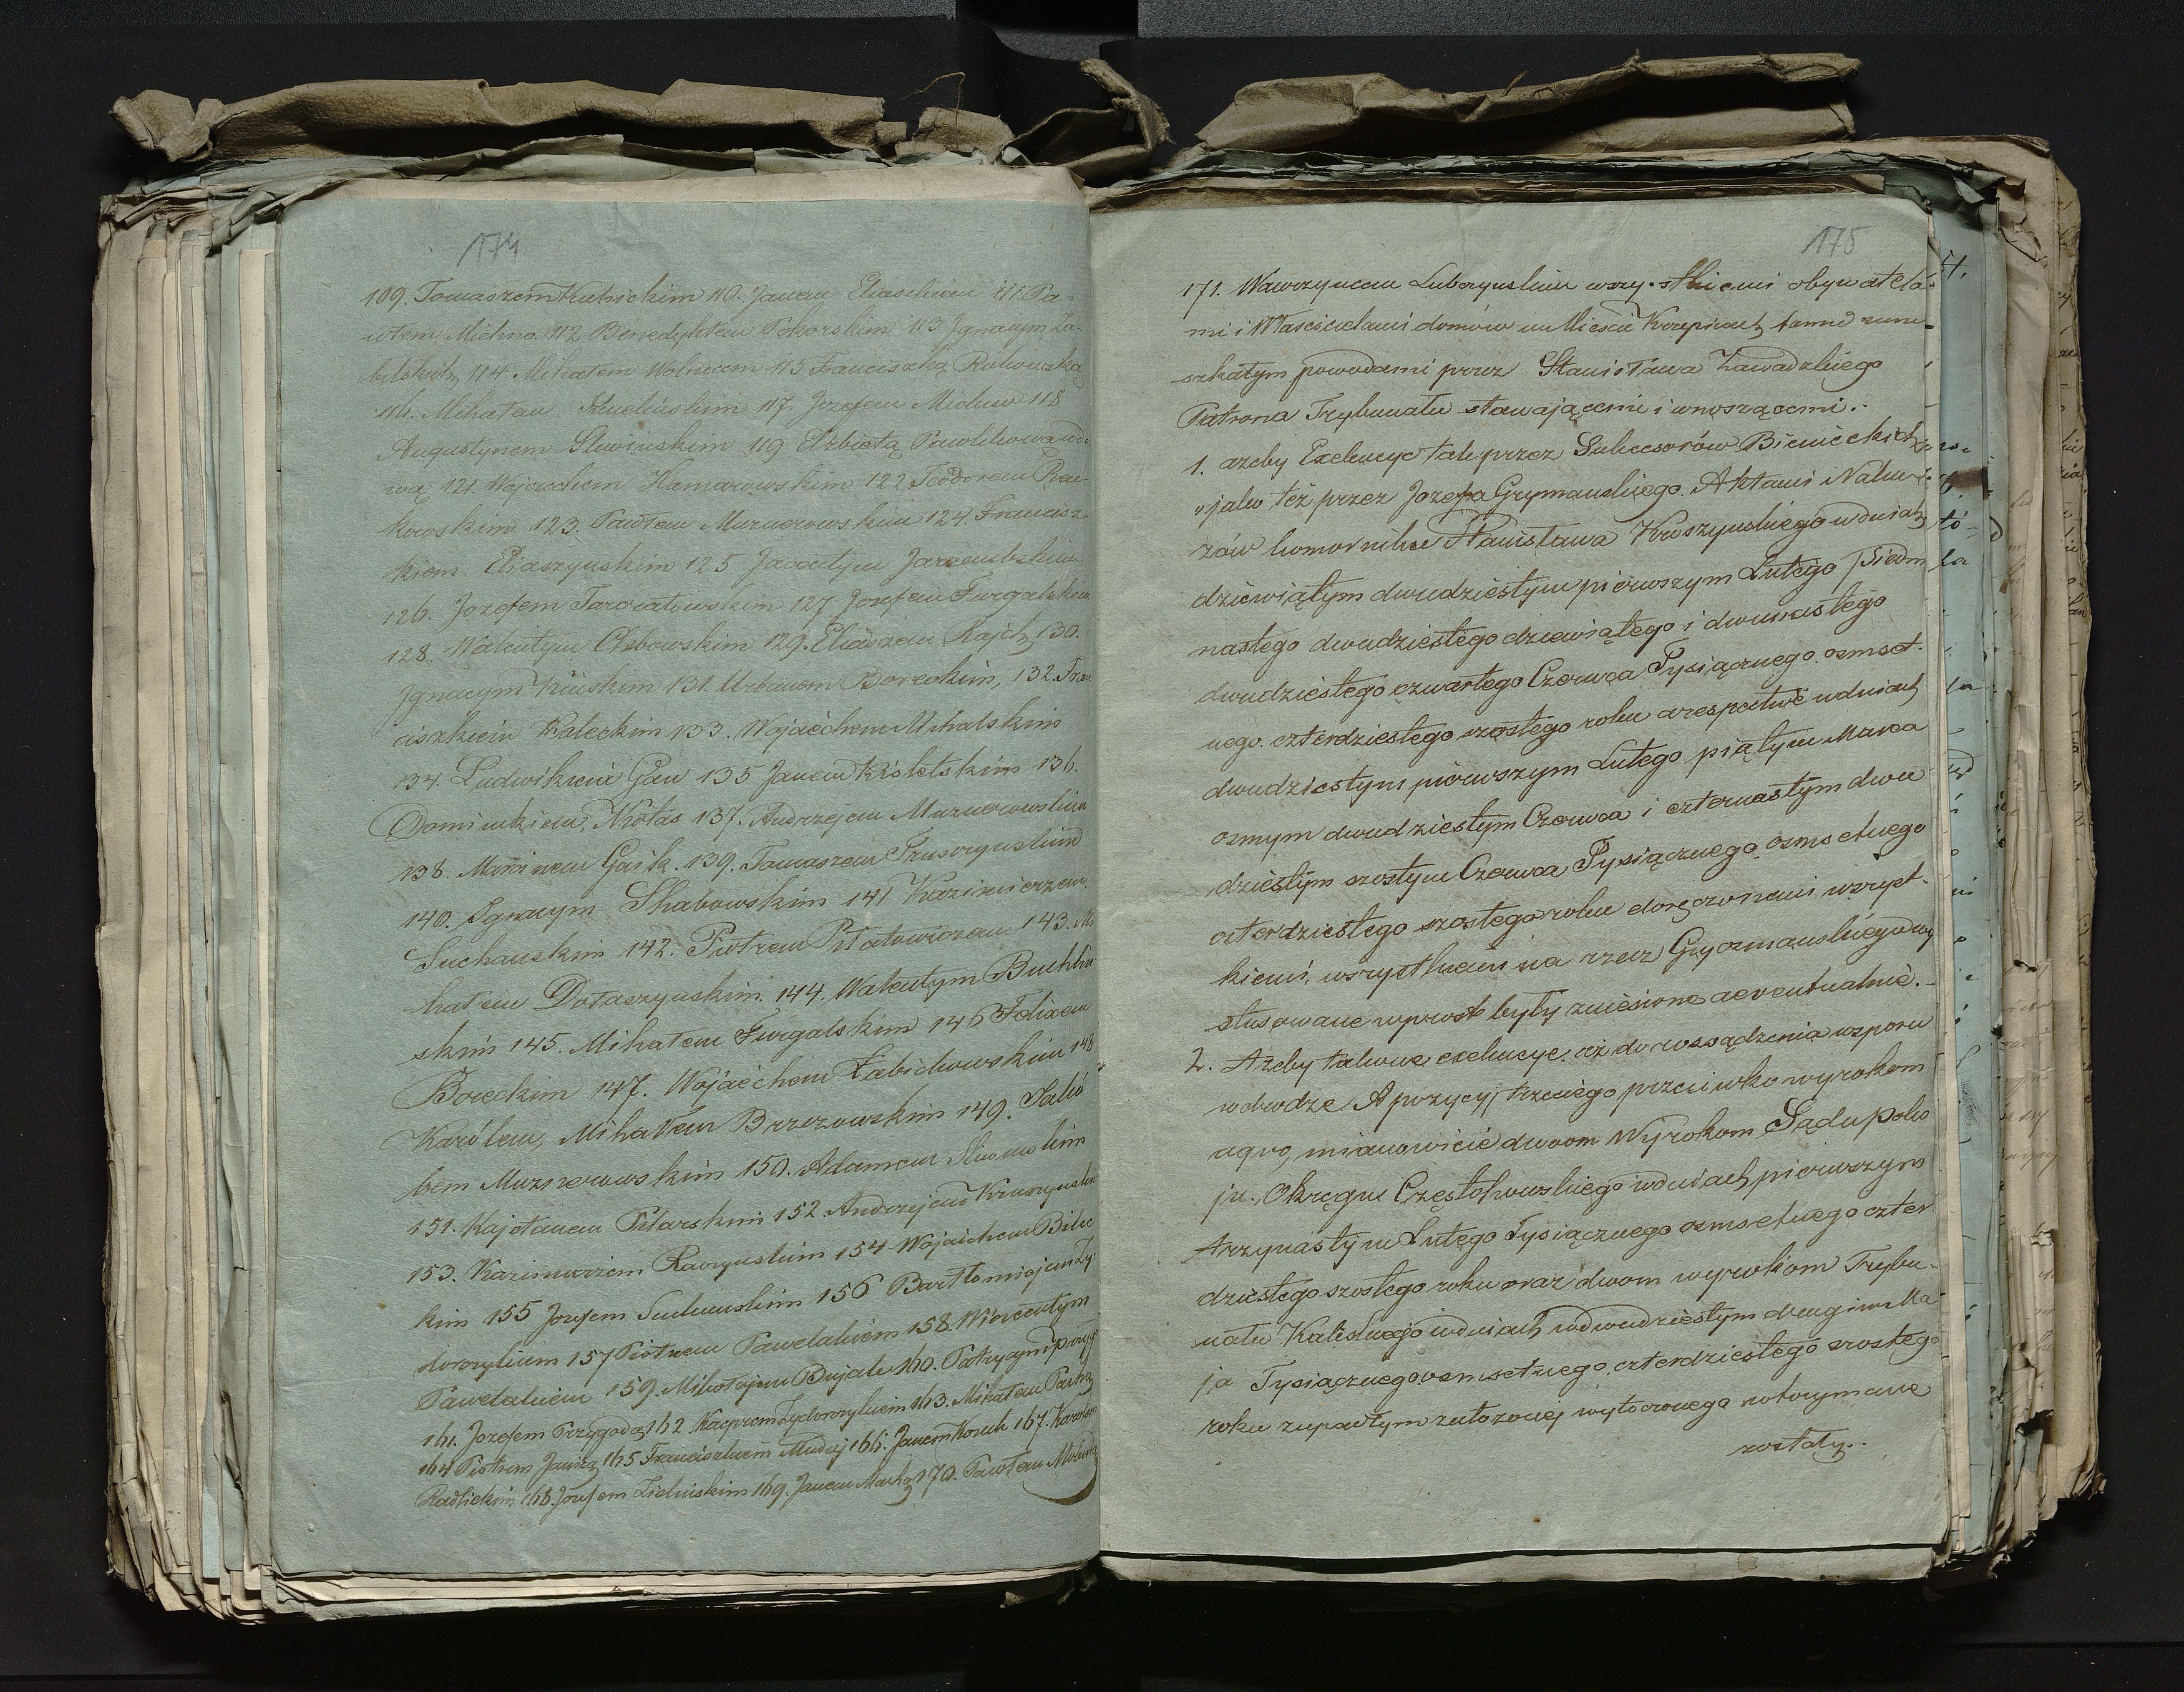 174.
109. Tomaszem Kubickim 110. Janem Eliaschem 111 Pa-
włem Michno. 112 Benedyktem Pokorskim 113. Ignacym Za-
bilskich 114. Mihałem Wolnicem 115 Franciszką Rutkowską
116. Mihałem 117. Jozefem Michno 118
Augustynem Sliwińskim 119 Elzbietą Pawlikową wdo
wą 121. Wojciechem Hamarowskim 122 Teodorem Ren
kowskim 123. Pawłem Muznerowskim 124. Francisz-
kiem Eliaszynskim 125 Jacentym Jarzembskim
126. Jozefem 127 Jozefem Furgalskim
128. Walentym Chebowskim 129. Eliaszem Rajch 130.
Ignacym Kińskim 131. Urbanem Boreckim, 132. Fran
ciszkiem Kaleckim 133. Wojciechem Mihalskim
134. Ludwikiem Gau 135 Janem Kisielskim 136.
Dominikiem Nicolas 137. Andrzejem Muznerowskim
138. Marcinem Gaik. 139. Tomaszem
140. Ignacym Skabowskim 141 Kazimierzem
Suchanskim 142. Piotrem Pilatowiczem 143. Mi
hałem Dołaszynskim. 144. Walentym Buchliń
skim 145. Mihałem Furgalskim 146 Felixem
Boreckim 147. Wojciechem Łabichowskim 148
Karólem, Mihałem Brzezowskim 149. Jakó
bem Muznerowskim 150. Adamem
151. Kajetanem Pilarskim 152. Andrzejem Kruszynskim
153. Kazimierzem Raczynskim 154 Wojciechem Bilec
kim 155 Jozefem Suchanskim 156 Bartłomiejem Ży-
dorczykiem 157 Piotrem Pawelakiem 158. Wincentym
Pawelakiem 159. Mikołajem Bujak 160. Patrycym
161. Jozefem Przygodą 162 Kacprem Zydorczykiem 163. Mihałem
164 Piotrem 165 Franciszkiem Madej 166. Janem Kosuk 167. Karolem
Radlickim 168. Jozefem Zielińskim 169. Janem 170. Pawłem
175
171. Wawrzyncem Luboynskim wszystkiemi obywatela-
mi i Właścicielami domów w Miescie Krzepicach tamże zamie-
szkałym powodami przez Stanisława Zawadzkiego
Patrona Trybunału stawającemi i wnoszącemi.-
1. azeby Exekucye tak przez Sukcesorów Bienieckich
jako też przez Jozefa Grymanskiego Aktami Naka-
zów komornika Stanisława Kruszynskiego w dniach
dziewiątym dwudziestym pierwszym Lutego siedm
nastego dwudziestego dziewiątego i dwunastego
dwudziestego czwartego Czerwca Tysiącznego osmset-
nego czterdziestego szostego roku a respective w dniach
dwudziestym pierwszym Lutego piątym Marca
osmym dwudziestym Czerwca i czternastym dwu
dziestym szostym Czerwca Tysiącznego osmsetnego
czterdziestego szostego roku doręczonemi wszyst-
kiemi, wszystkiemi na rzecz Gryzmanskiego wy
stosowane wprost były zniesione a eventualnie.-
2. Azeby takowe exekucye, aż do rossądzenia wsporu
w drodze Apozycyi trzeciego przeciwko wyrokom
a quo, mianowicie dwoom Wyrokom Sądu Poko
ju. Okręgu Częstohowskiego w dniach pierwszym
trzynastym Lutego Tysiącznego osmsetnego czter
dziestego szostego roku oraz dwom wyrokom Trybu-
nału Kaliskiego w dniach w dwudziestym drugim Ma
ja Tysiącznego osmsetnego czterdziestego szostego
roku zapadłym założonej wytoczonego wstrzymane
zostały.-